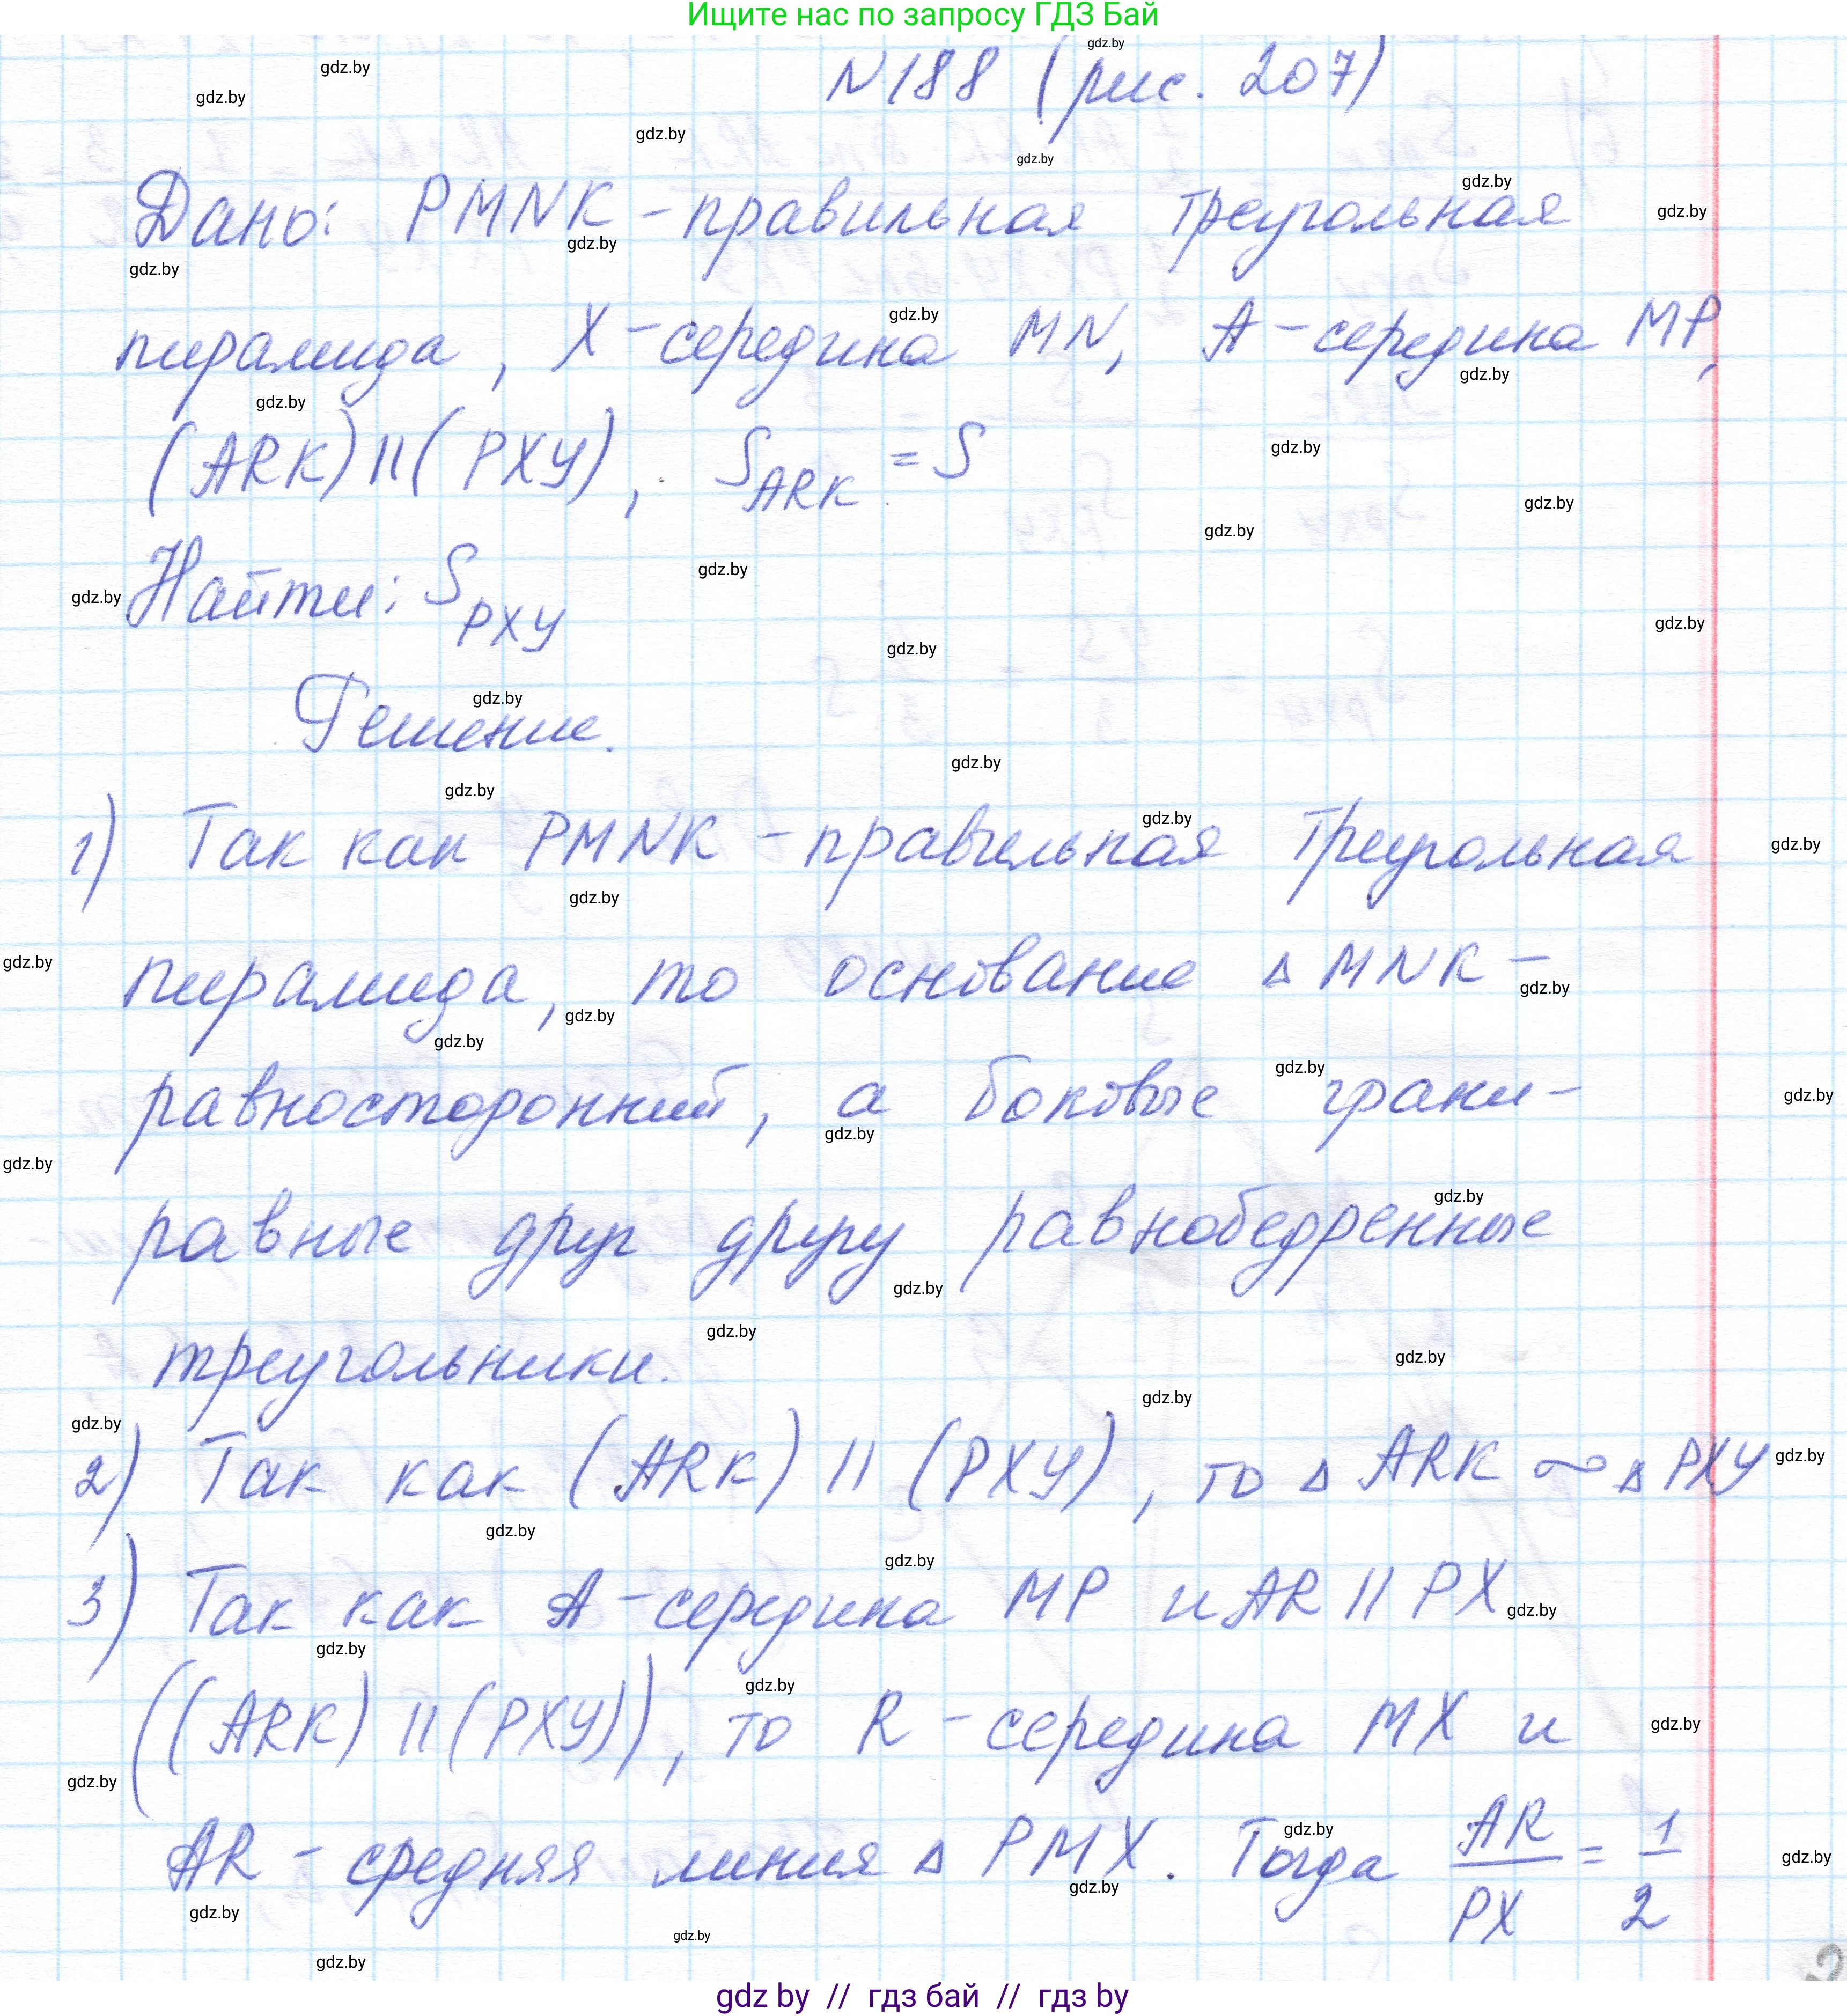 Ищите нас по запросу ГДЗ Бай
N188 (рис. 207)
Дано: PMNK - правильная треугольная
пирамида, X - середина MN, A - середина MP,
(ARK) || (PXY), S_ARK = S
Найти: S_PXY
Решение.
1) Так как PMNK - правильная треугольная
пирамида, то основание Δ MNK -
равносторонний, а боковые грани -
равные друг другу равнобедренные
треугольники.
2) Так как (ARK) || (PXY), то Δ ARK ~ Δ PXY
3) Так как A - середина MP и AR || PX
((ARK) || (PXY)), то R - середина MX и
AR - средняя линия Δ PMX. Тогда AR/PX = 1/2
gdz by // гдз бай // гдз by